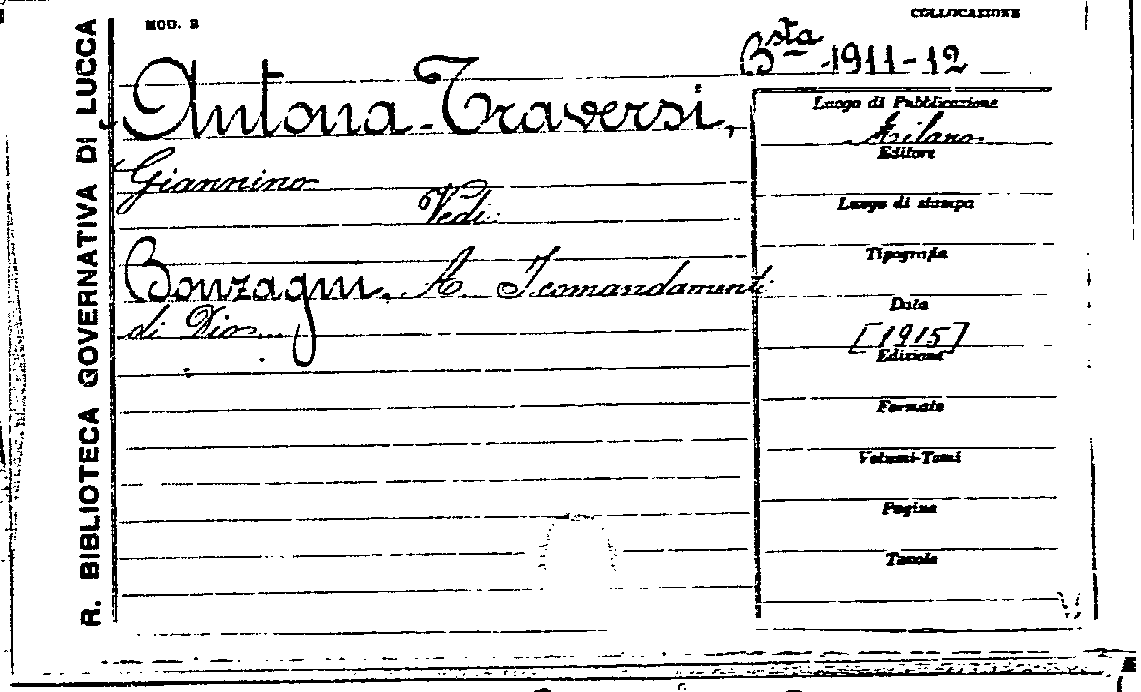 R. BIBLIOTECA GOVERNATIVA DI LUCCA
MOD. B
COLLOCAZIONE
Bsta 1911-12
Antona-Traversi,
Giannino
Vedi:
Bonzagni, A. I comandamenti
di Dio
Luogo di Pubblicazione
Milano
Editore
Luogo di stampa
Tipografia
Data
[1915]
Edizione
Formato
Volumi-Tomi
Pagine
Tavole